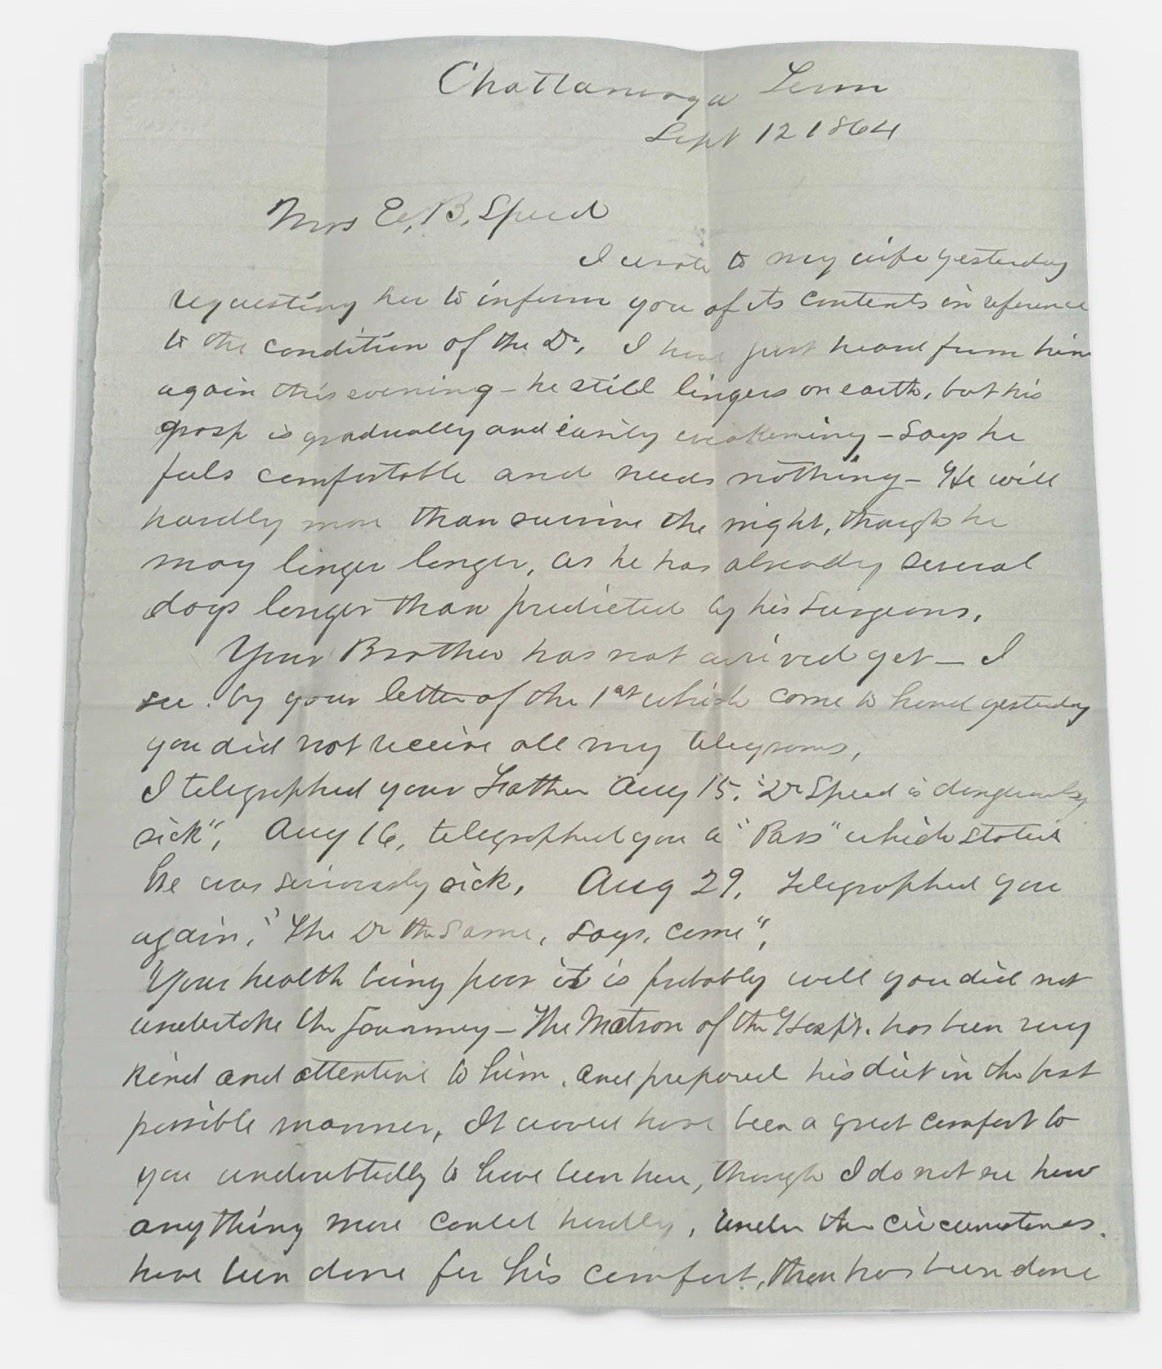 Chattanooga Tenn
Sept 12 1864
Mrs E. B. Speed
I wrote to my wife yesterday
requesting her to inform you of its contents in reference
to the condition of the Dr, I have just heard from him
again this evening – he still lingers on earth, but his
grasp is gradually and easily weakening – Says he
feels comfortable and needs nothing – He will
hardly more than survive the night, though he
may linger longer, as he has already several
days longer than predicted by his Surgeons.
Your Brother has not arrived yet – I
see by your letter of the 1st which came to hand yesterday
you did not receive all my telegrams,
I telegraphed your Father Aug 15. "Dr Speed is dangerously
sick", Aug 16, telegraphed you a "Pass" which stated
he was seriously sick. Aug 29, telegraphed you
again, "The Dr the Same, Says, come",
Your health being poor it is probably well you did not
undertake the Journey – The Matron of the Hospt. has been very
kind and attentive to him, and prepared his diet in the best
possible manner, It would have been a great comfort to
you undoubtedly to have been here, though I do not see how
anything more could hardly, under the circumstances.
have been done for his comfort, than has been done